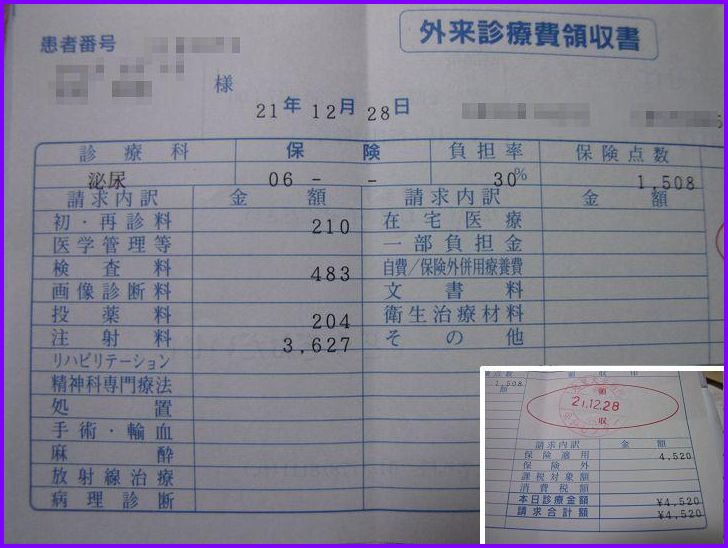 外来診療費領収書
患者番号
様
21年 12月 28日
診療科 保険 負担率 保険点数
泌尿 06 - - 30% 1,508
請求内訳 金額 請求内訳 金額
初・再診料 210 在宅医療
医学管理等 一部負担金
検査料 483 自費/保険外併用療養費
画像診断料 文書料
投薬料 204 衛生治療材料
注射料 3,627 その他
リハビリテーション
精神科専門療法
処置
手術・輸血
麻酔
放射線治療
病理診断
点数 領収印
1,508
額
領
21.12.28
収
請求内訳 金額
保険適用 4,520
保険外
課税対象額
消費税額
本日診療金額 ¥4,520
請求合計額 ¥4,520